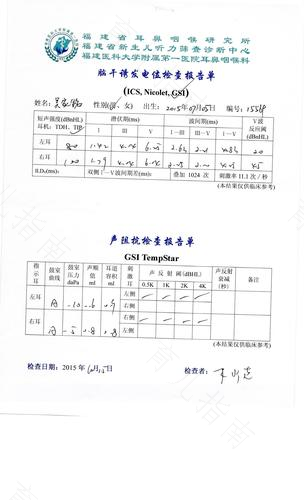 福建省耳鼻咽喉研究所
福建省新生儿听力筛查诊断中心
福建医科大学附属第一医院耳鼻咽喉科
脑干诱发电位检查报告单
(ICS, Nicolet, GSI)
姓名: 性别(男、女) 出生: 2015年07月05日 编号: 15558
短声强度(dBnHL) 潜伏期(ms) 波间期(ms) V波反应阈(dBnHL)
耳机: TDH、TIP I III V I—III III—V I—V
左耳 80 1.42 4.04 6.25 2.62 2.21 4.83 20
右耳 4.04 4.25 45
ILDv(ms): 双侧I—V波间期差(ms): 叠加 1024 次 刺激率 11.1 次/秒
(本结果仅供临床参考)
声阻抗检查报告单
GSI TempStar
指示耳 鼓室曲线 鼓室压力 daPa 声顺值 ml 耳道容积 ml 刺激耳 声反射阈(dBHL) 声反射衰减(秒) 备注
0.5K 1K 2K 4K
左耳 A -10 左侧
右侧
右耳 A -5 右侧
左侧
(本结果仅供临床参考)
检查日期: 2015 年 检查者:
育儿指南